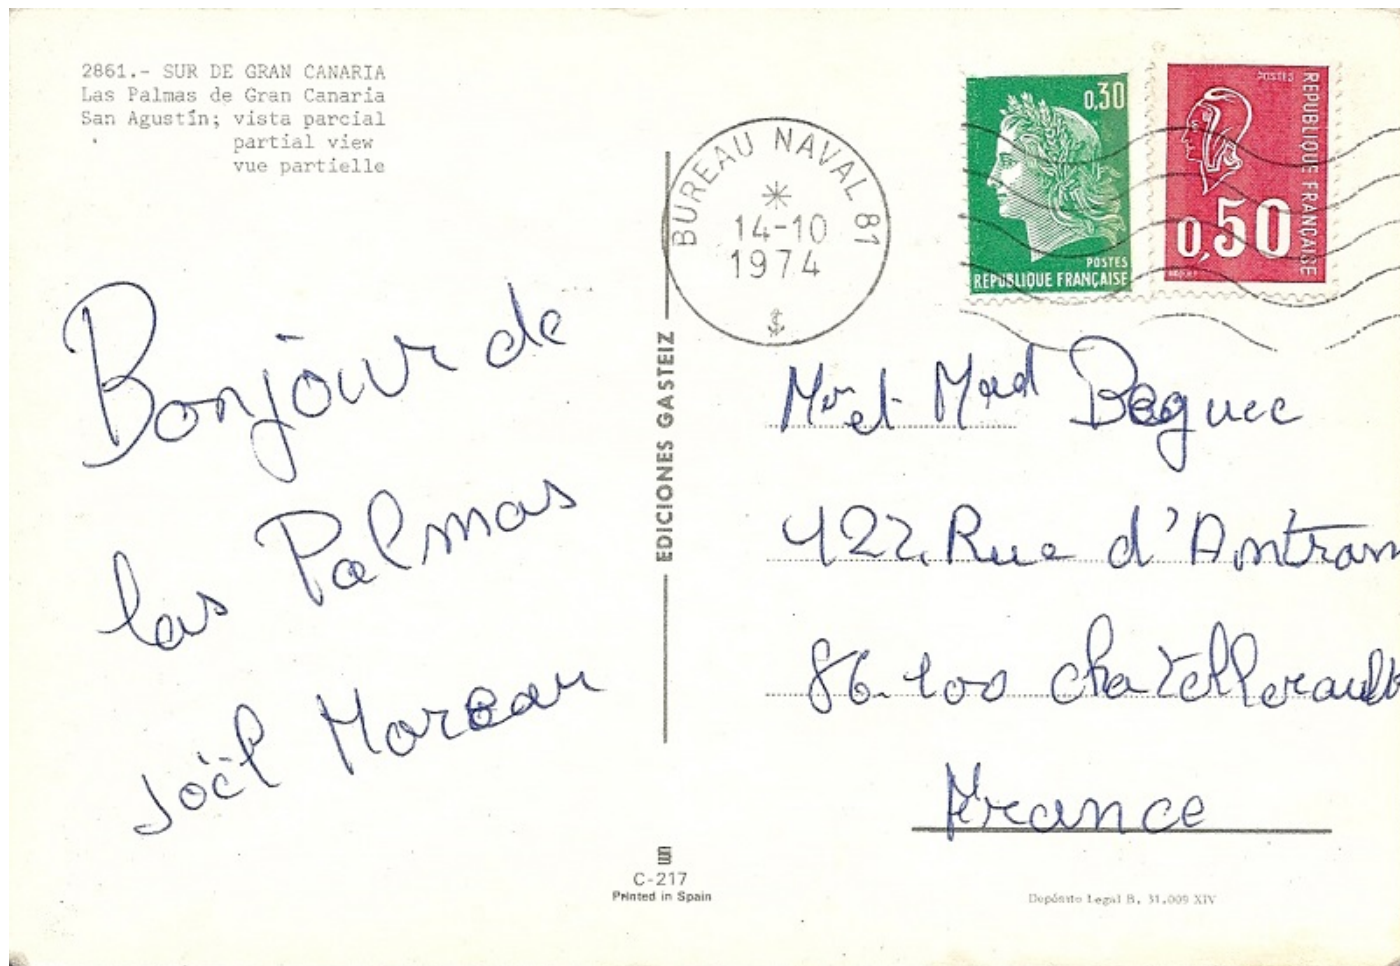 2861.- SUR DE GRAN CANARIA
Las Palmas de Gran Canaria
San Agustín; vista parcial
partial view
vue partielle
Bonjour de
las Palmas
Joël Moreau
EDICIONES GASTEIZ
C-217
Printed in Spain
BUREAU NAVAL 81
14-10
1974
0,30
POSTES
REPUBLIQUE FRANÇAISE
POSTES
REPUBLIQUE FRANÇAISE
0,50
Mr et Mad Beguec
422, Rue d'Antran
86-100 chatellerault
France
Depósito Legal B. 31.009 XIV